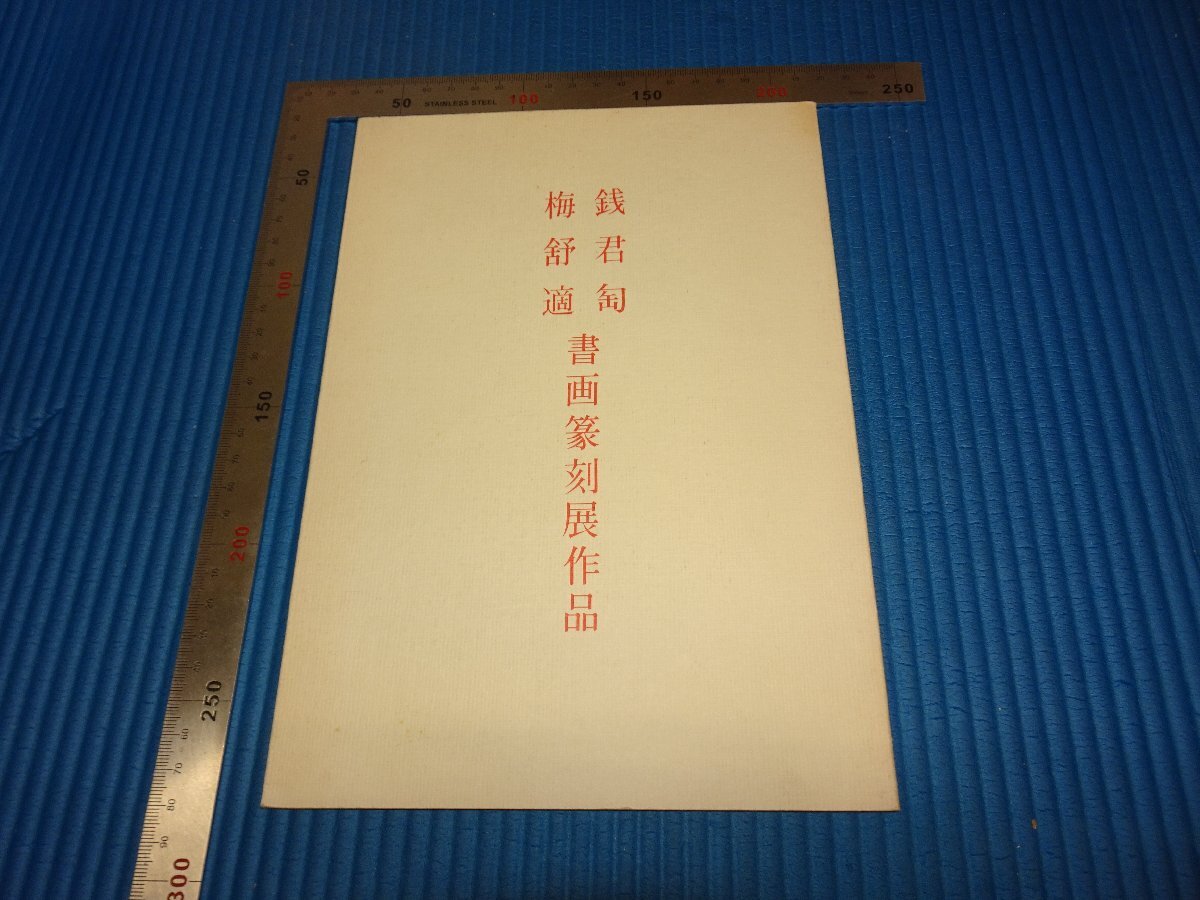 銭君匋
梅舒適
書画篆刻展作品
STAINLESS STEEL
50
100
150
200
250
50
100
150
200
250
300